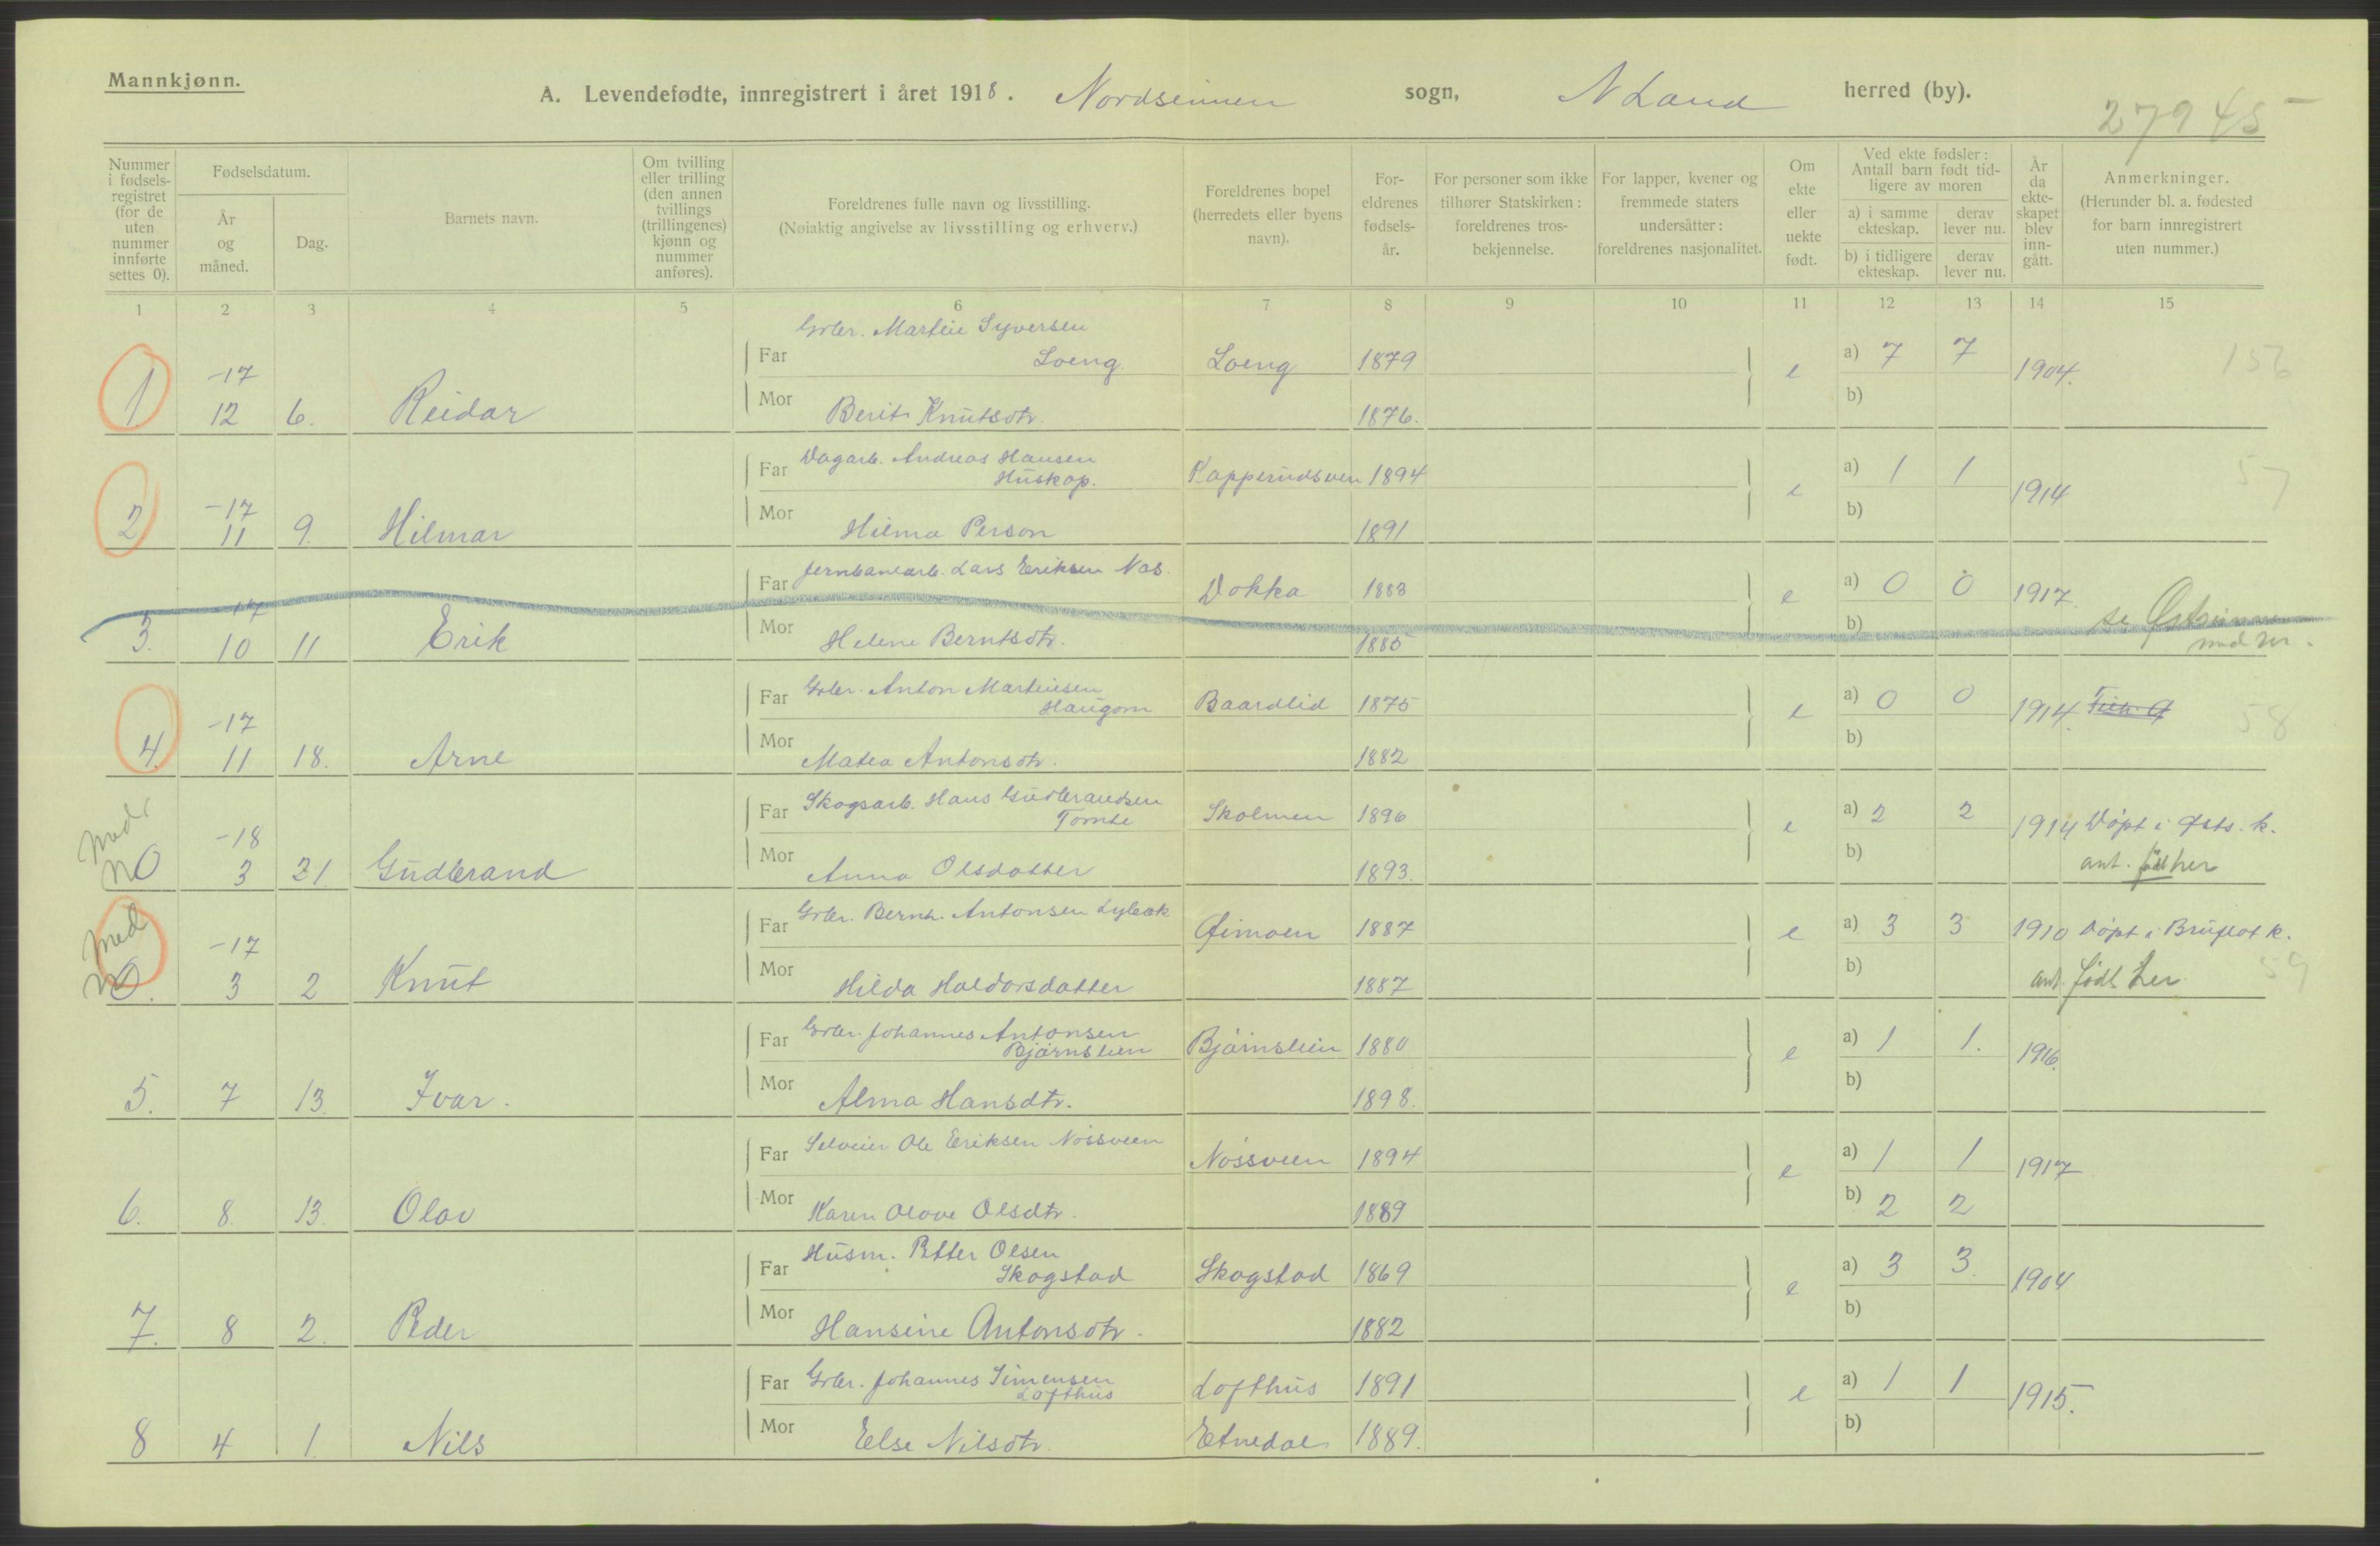 Mannkjønn.
A. Levendefødte, innregistrert i året 1918. Nordsinnen sogn, N Land herred (by).
27945
Nummer i fødsels-registret (for de uten nummer innførte settes 0).
Fødselsdatum.
År og måned.
Dag.
Barnets navn.
Om tvilling eller trilling (den annen tvillings (trillingenes) kjønn og nummer anføres).
Foreldrenes fulle navn og livsstilling.
(Nøiaktig angivelse av livsstilling og erhverv.)
Foreldrenes bopel (herredets eller byens navn).
For-eldrenes fødsels-år.
For personer som ikke tilhører Statskirken: foreldrenes tros-bekjennelse.
For lapper, kvener og fremmede staters undersåtter: foreldrenes nasjonalitet.
Om ekte eller uekte født.
Ved ekte fødsler: Antall barn født tid-ligere av moren
a) i samme ekteskap.
derav lever nu.
b) i tidligere ekteskap.
derav lever nu.
År da ekte-skapet blev inn-gått.
Anmerkninger.
(Herunder bl. a. fødested for barn innregistrert uten nummer.)
1 2 3 4 5 6 7 8 9 10 11 12 13 14 15
Grbr. Martin Syversen
Far Loeng Loeng 1879 e a) 7 7 1904. 156
-17
1 12 6. Reidar Mor Berit Knutsdtr. 1876. b)
Far Dagarb. Andreas Hansen
Huskop. Kapperudsven 1894 e a) 1 1 1914 57
-17
2 11 9. Hilmar Mor Hilma Person 1891 b)
Far Jernbanearb. Lars Eriksen Nas.
Dokka 1883 e a) 0 0 1917 se Østsinnen
-17
3. 10 11 Erik Mor Helene Berntsdtr. 1885 b) und nr.
Far Grbr. Anton Martinsen
Haugom Baardlid 1875 e a) 0 0 1914. 58
-17
4. 11 18. Arne Mor Matea Antonsdtr. 1882 b)
Far Skogsarb. Hans Gudbrandsen
Tomte Skolmen 1896 e a) 2 2 1914 Døpt i Østs. k.
med -18
0 3 21 Gudbrand Mor Anna Olsdatter 1893. b) ant. født her
Far Grbr. Bernh. Antonsen Lybæk
Øimoen 1887 e a) 3 3 1910 Døpt i Bruflat k.
med -17
0. 3 2 Knut Mor Hilda Haldorsdatter 1887 b) ant. født her 59
Far Grbr. Johannes Antonsen
Bjørnslien Bjørnslein 1880 e a) 1 1. 1916.
5. 7 13. Ivar. Mor Alma Hansdtr. 1898. b)
Far Selveier Ole Eriksen Nøssveen
Nøssveen 1894 e a) 1 1 1917
6. 8. 13. Olav Mor Karen Olave Olsdtr. 1889 b) 2 2
Far Husm. Petter Olsen
Skogstad Skogstad 1869 e a) 3 3. 1904
7. 8 2. Peder Mor Hansine Antonsdtr. 1882 b)
Far Grbr. Johannes Simensen
Lofthus Lofthus 1891 e a) 1 1 1915.
8 4 1. Nils Mor Else Nilsdtr. Etnedal 1889. b)